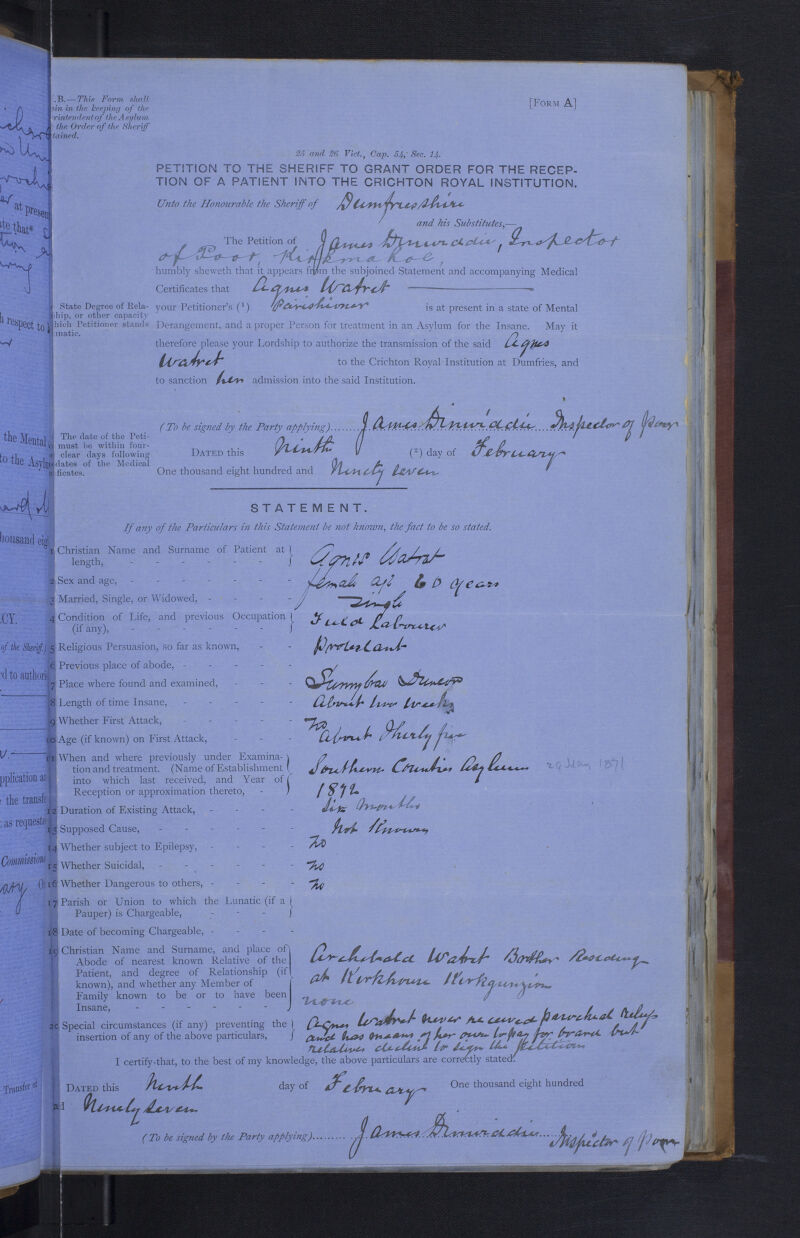 .B.—This Form shall
in in the keeping of the
rintendent of the Asylum
the Order of the Sheriff
tained.
[FORM A]
25 and 26 Vict., Cap. 54, Sec. 14.
PETITION TO THE SHERIFF TO GRANT ORDER FOR THE RECEP-
TION OF A PATIENT INTO THE CRICHTON ROYAL INSTITUTION.
Unto the Honourable the Sheriff of Dumfriesshire
and his Substitutes,—
The Petition of James Dinwiddie, Inspector
of Poor, Kirkmahoe,
humbly sheweth that it appears from the subjoined Statement and accompanying Medical
Certificates that Agnes Watret
State Degree of Rela-
ship, or other capacity
hich Petitioner stands
matic.
your Petitioner's (¹) Parishioner is at present in a state of Mental
Derangement, and a proper Person for treatment in an Asylum for the Insane. May it
therefore please your Lordship to authorize the transmission of the said Agnes
Watret to the Crichton Royal Institution at Dumfries, and
to sanction her admission into the said Institution.
(To be signed by the Party applying) James Dinwiddie Inspector of Poor
The date of the Peti-
must be within four-
clear days following
dates of the Medical
ficates.
DATED this Ninth (²) day of February
One thousand eight hundred and Ninety seven
STATEMENT.
If any of the Particulars in this Statement be not known, the fact to be so stated.
1 Christian Name and Surname of Patient at length, Agnes Watret
2 Sex and age, female age 60 years
3 Married, Single, or Widowed, Single
4 Condition of Life, and previous Occupation (if any), Field Labourer
5 Religious Persuasion, so far as known, Protestant
6 Previous place of abode,
7 Place where found and examined, Sunnybrae Duncow
8 Length of time Insane, About two weeks
9 Whether First Attack, No
10 Age (if known) on First Attack, About Thirty five
11 When and where previously under Examina-
tion and treatment. (Name of Establishment Southern Counties Asylum
into which last received, and Year of
Reception or approximation thereto, 1872
12 Duration of Existing Attack, Six Months
13 Supposed Cause, Not Known
14 Whether subject to Epilepsy, No
15 Whether Suicidal, No
16 Whether Dangerous to others, No
17 Parish or Union to which the Lunatic (if a
Pauper) is Chargeable,
18 Date of becoming Chargeable,
19 Christian Name and Surname, and place of Archibald Watret Brother Residing
Abode of nearest known Relative of the
Patient, and degree of Relationship (if at Kirkhouse Kirkgunzion
known), and whether any Member of
Family known to be or to have been none
Insane,
20 Special circumstances (if any) preventing the Agnes Watret never received parochial relief
insertion of any of the above particulars, and has means of her own to pay for board but
relatives decline to sign the Petition
I certify that, to the best of my knowledge, the above particulars are correctly stated.
DATED this Ninth day of February One thousand eight hundred
Ninety seven
(To be signed by the Party applying) James Dinwiddie Inspector of Poor